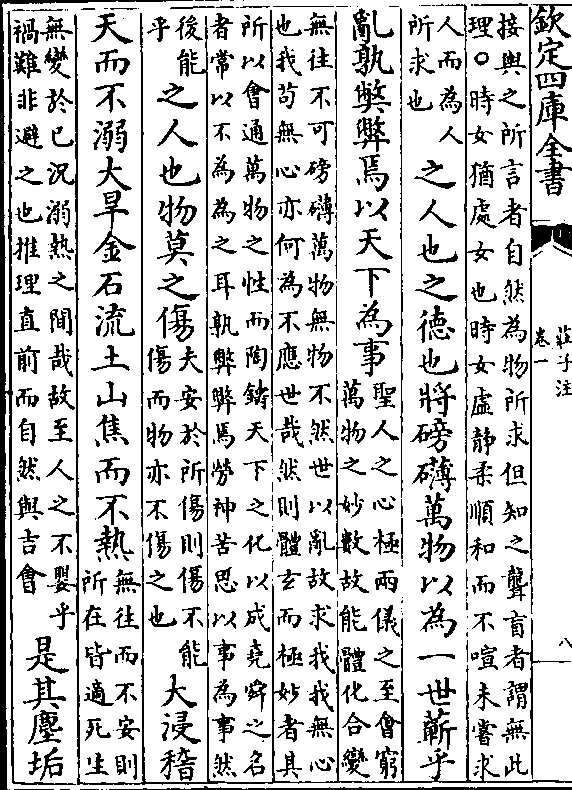 欽定四庫全書
莊子注
卷一
八
接輿之所言者自然為物所求但知之聾盲者謂無此
理○時女猶處女也時女虛静柔順和而不喧未嘗求
人而為人
所求也
之人也之德也將磅礴萬物以為一世蘄乎
亂孰弊弊焉以天下為事
聖人之心極兩儀之至會窮
萬物之妙數故能體化合變
無往不可磅礴萬物無物不然世以亂故求我我無心
也我苟無心亦何為不應世哉然則體玄而極妙者其
所以會通萬物之性而陶鑄天下之化以成堯舜之名
者常以不為為之耳孰弊弊焉勞神苦思以事為事然
後能
乎
之人也物莫之傷
夫安於所傷則傷不能
傷而物亦不傷之也
大浸稽
天而不溺大旱金石流土山焦而不熱
無往而不安則
所在皆適死生
無變於已況溺熱之間哉故至人之不嬰乎
禍難非避之也推理直前而自然與吉會
是其塵垢